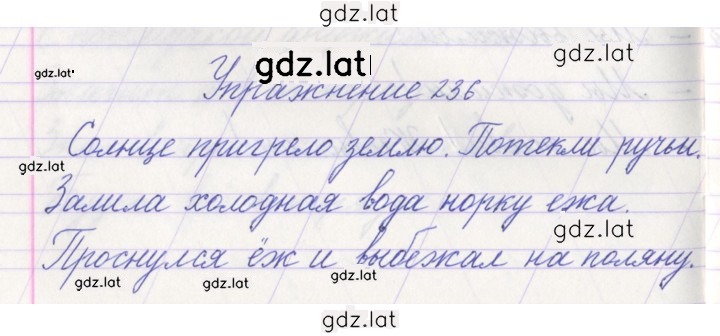 gdz.lat
gdz.lat
gdz.lat
Упражнение 236
Солнце пригрело землю. Потекли ручьи.
gdz.lat
Залила холодная вода норку ежа.
gdz.lat
Проснулся ёж и выбежал на поляну.
gdz.lat
gdz.lat
gdz.lat
gdz.lat